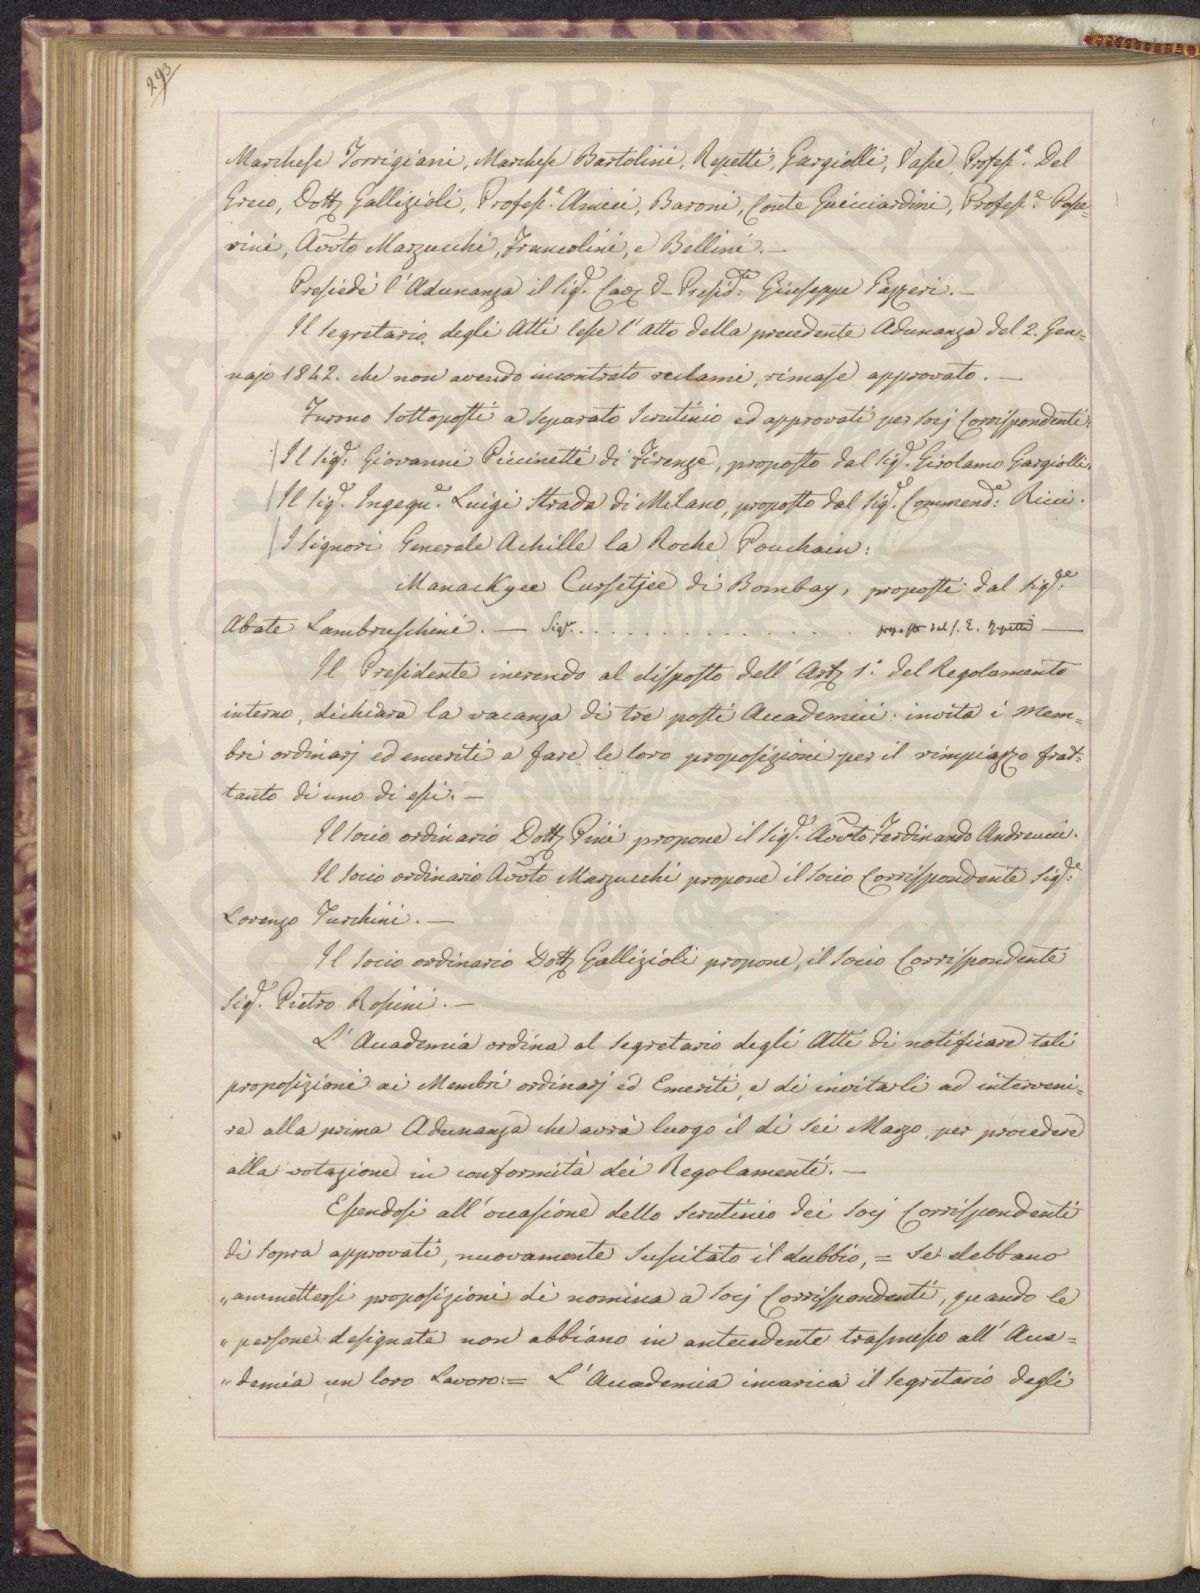 293
Marchese Torrigiani, Marchese Bartolini, Repetti, Gargiolli, Vasse, Profess.e Del
Greco, Dott. Gallizioli, Profess.e Amici, Baroni, Conte Guicciardini, Profess.e Passe=
rini, Avv.to Marzucchi, Francolini, e Bellini. —
Presiedè l'Adunanza il Sig.r Cav. Presid.te: Giuseppe Gazzeri. —
Il Segretario degli Atti lesse l'atto della precedente Adunanza del 2. Gen=
najo 1842. che non avendo incontrato reclami, rimase approvato. —
Furono sottoposti a separato Scrutinio ed approvati per Socj Corrispondenti:
Il Sig.r Giovanni Piccinetti di Firenze, proposto dal Sig.r Girolamo Gargiolli.
Il Sig.r Ingegn.e Luigi Strada di Milano, proposto dal Sig.r Commend.e: Ricci.
I Signori Generale Achille la Roche Pouchain:
Manackyee Cursetjee di Bombay, proposti dal Sig.re:
Abate Lambruschini. — Sig.r . . . . . . . . . . . . . . proposto dal S. E. Repetti —
Il Presidente inerendo al disposto dell'Art. 1.o del Regolamento
interno, dichiara la vacanza di tre posti Accademici: invita i Mem=
bri ordinarj ed emeriti a fare le loro proposizioni per il rimpiazzo frat=
tanto di uno di essi. —
Il Socio ordinario Dott. Pini propone il Sig.r Avv.to Ferdinando Andreucci.
Il Socio ordinario Avv.to Marzucchi propone il Socio Corrispondente Sig.re:
Lorenzo Turchini. —
Il Socio ordinario Dott. Gallizioli propone, il Socio Corrispondente
Sig.r Pietro Rossini. —
L'Accademia ordina al Segretario degli Atti di notificare tali
proposizioni ai Membri ordinarj ed Emeriti, e di invitarli ad interveni=
re alla prima Adunanza che avrà luogo il dì sei Marzo, per procedere
alla votazione in conformità dei Regolamenti. —
Essendosi all'occasione dello Scrutinio dei Socj Corrispondenti
di sopra approvati, nuovamente suscitato il dubbio, = Se debbano
„ ammettersi proposizioni di nomina a Socj Corrispondenti, quando le
„ persone designate non abbiano in antecedente trasmesso all'Acca=
„ demia un loro Lavoro: = L'Accademia incarica il Segretario degli